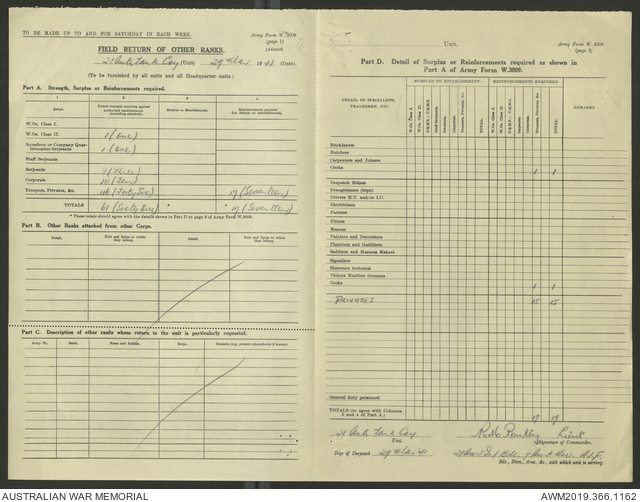 TO BE MADE UP TO AND FOR SATURDAY IN EACH WEEK.
Army Form W. 3009
(page 1)
(Adapted)
FIELD RETURN OF OTHER RANKS.
(Unit)
(Date)
(To be furnished by all units and all Headquarter units.)
Part A. Strength, Surplus or Reinforcements required.
1 2 3 4
Detail. Posted strength counting against authorized establishment (including attached). Surplus to Establishment. Reinforcements required
W.Os. Class I.
W.Os. Class II. 1 (One)
Squadron or Company Quartermaster-Serjeants 1 (One)
Staff Serjeants
Serjeants 3 (Three)
Corporals 10 (Ten)
Troopers, Privates, &c. 46 (Forty Six) 17 (Seventeen)
TOTALS 61 (Sixty One) * * 17 (Seventeen)
* These totals should agree with the details shewn in Part D on page 2 of Army Form W.3009.
Part B. Other Ranks attached from other Corps.
Detail. Unit and Corps to which they belong. Detail. Unit and Corps to which they belong.
Part C. Description of other ranks whose return to the unit is particularly requested.
Army No. Rank. Name and Initials. Corps. Remarks (e.g., present whereabouts if known).
Unit.
Army Form W. 3009
(page 2)
Part D. Detail of Surplus or Reinforcements required as shewn in
Part A of Army Form W.3009.
DETAIL OF SPECIALISTS, TRADESMEN, ETC. SURPLUS TO ESTABLISHMENT. REINFORCEMENTS REQUIRED. REMARKS
W.Os. Class I. W.Os. Class II. S.Q.M.S. / C.Q.M.S. Staff Serjeants. Serjeants. Corporals. Troopers, Privates, &c. TOTAL.
W.Os. Class I. W.Os. Class II. S.Q.M.S. / C.Q.M.S. Staff Serjeants. Serjeants. Corporals. Troopers, Privates, &c. TOTAL.
Bricklayers
Butchers
Carpenters and Joiners
Clerks 1 1
Despatch Riders
Draughtsmen (topo)
Drivers H.T. and/or I.C.
Electricians
Farriers
Fitters
Masons
Painters and Decorators
Plumbers and Gasfitters
Saddlers and Harness Makers
Signallers
Storemen technical
Vickers Machine Gunners
Cooks 1 1
PRIVATES 15 15
General duty personnel
TOTALS (to agree with Columns
3 and 4 of Part A.) 17 17
Lieut
Unit.
Signature of Commander.
Date of Despatch
A.I.F.
Bde., Divn., Area, &c., with which unit is serving.
AUSTRALIAN WAR MEMORIAL
AWM2019.366.1162